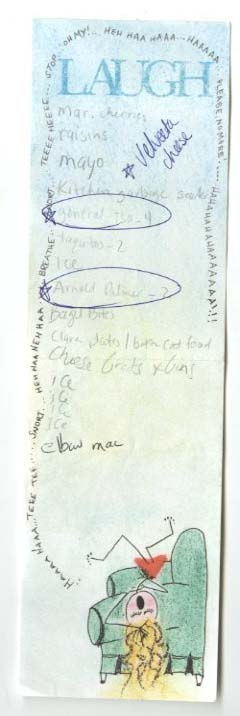 LAUGH
Mar. cherries
raisins
mayo
Velveeta
cheese
Kitchen garbage
general tso - 4
taquitos - 2
Ice
Arnold Palmer - 2
Bagel Bites
cat food
Cheese
ICe
ICe
ICe
ICe
elbow mac
STOP... OH MY!... HEH HAA HAAA... HAAAAA
PLEASE, NO MORE!... HAHAHAHAHAHAAAAAA!!!
HAAAA... TEEE TEE..... SNORT... HEH HAA HEH HAA... BREATHE... SNORT... TEEEE HEEEE...